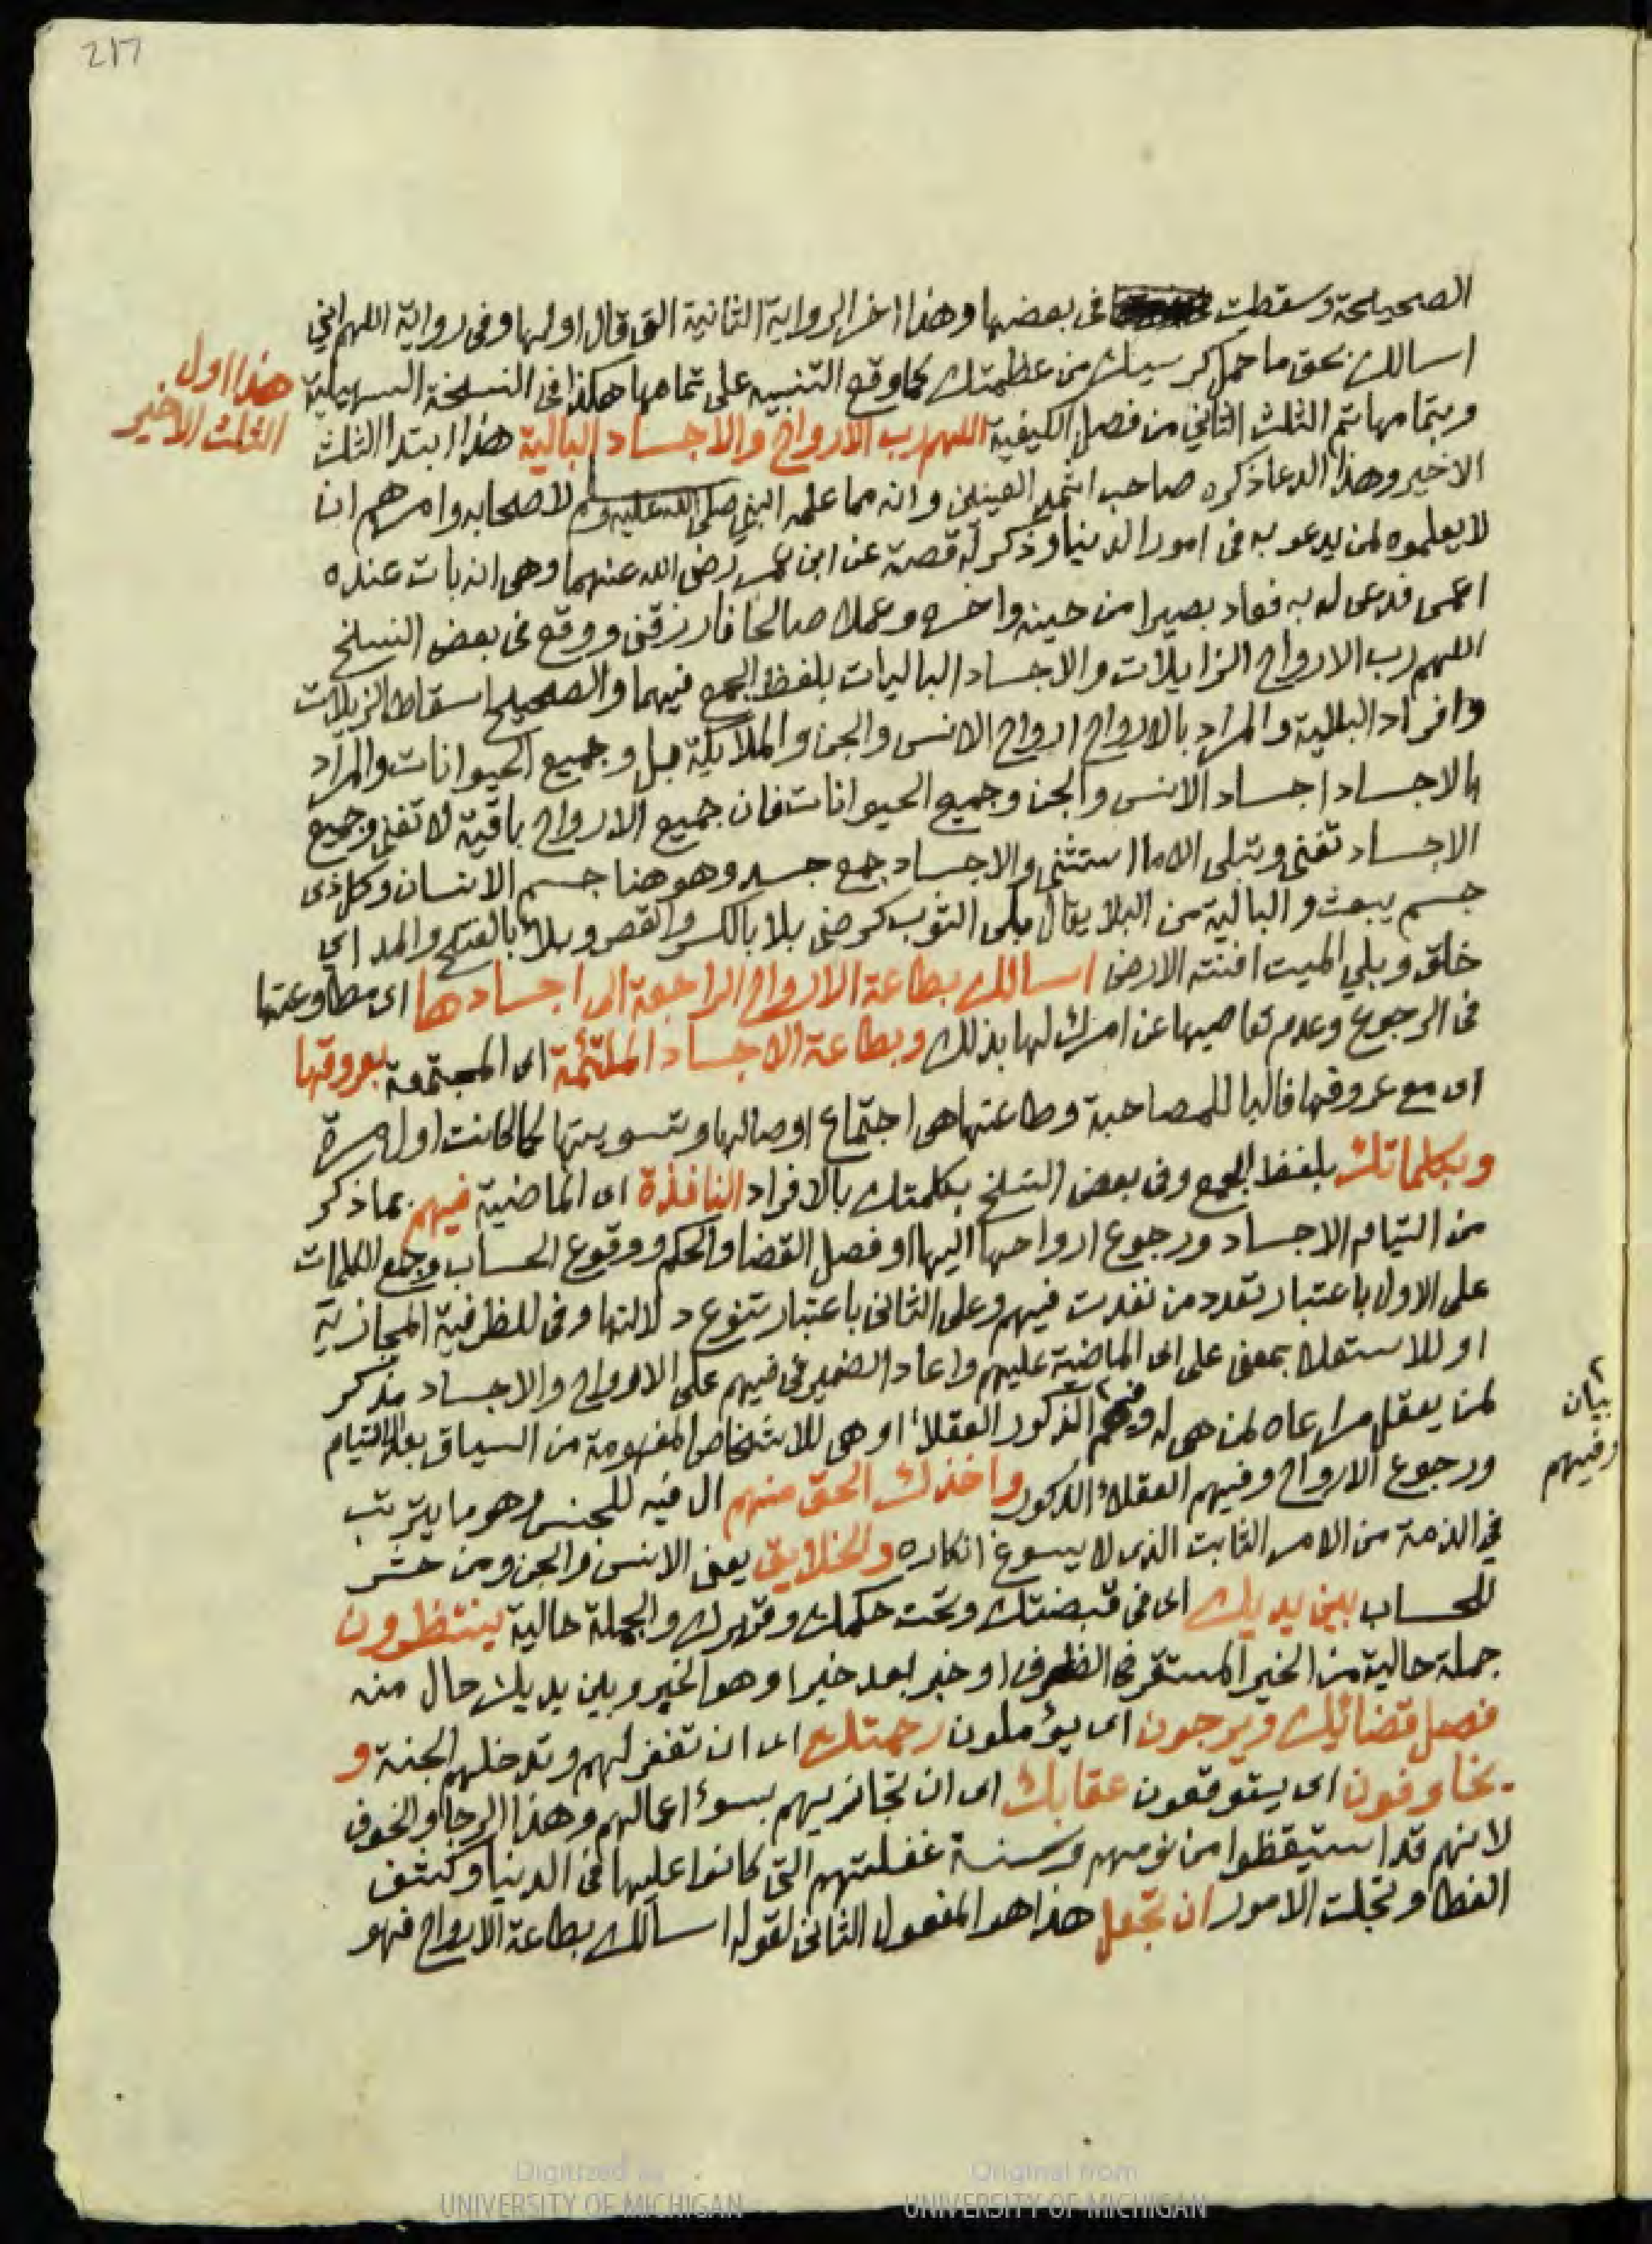 217
الصحيحة وسقطت في بعضها وهذا اخر الرواية الثانية التي قال اولها وفي رواية اللهم اني
اسالك بحق ما حمل كرسيك من عظمتك كما وقع التنبيه على تمامها هكذا في النسخة السهيلية
هذا اول
الثلث الاخير
وبتمامها تم الثلث الثاني من فصل الكيفية اللهم رب الارواح والاجساد البالية هذا ابتدا الثلث
الاخير وهذا الدعا ذكره صاحب اثمد العينين وانه مما علمه النبي صلى الله عليه وسلم لاصحابه وامرهم ان
لا يعلموه لمن يدعو به في امور الدنيا وذكر له قصة عن ابن عمر رضي الله عنهما وهي انه بات عنده
اعمى فدعى له به فعاد بصيرا من حينه واخره وعملا صالحا فارزقني ووقع في بعض النسخ
اللهم رب الارواح الزايلات والاجساد الباليات بلفظ الجمع فيهما والصحيح اسقاط الزيلات
وافراد البالية والمراد بالارواح ارواح الانس والجن والملايكة بل وجميع الحيوانات والمراد
بالاجساد اجساد الانس والجن وجميع الحيوانات فان جميع الارواح باقية لا تفنى وجميع
الاجساد تفنى وتبلى الا ما استثني والاجساد جمع جسد وهو هنا جسم الانسان وكل ذي
جسم يبعث والبالية من البلا يقال بلى الثوب كرضى بلا بالكسر والقصر وبلاء بالفتح والمد اي
خلق وبلي الميت افنته الارض اسالك بطاعة الارواح الراجعة الى اجسادها اى مطاوعتها
في الرجوع وعدم تعاصيها عن امرك لها بذلك وبطاعة الاجساد الملتئمة اى المجتمعة بعروقها
اى مع عروقها فالبا للمصاحبة وطاعتها هي اجتماع اوصالها وتسويتها كما كانت اول مرة
وبكلماتك بلفظ الجمع وفي بعض النسخ بكلمتك بالافراد النافذة اى الماضية فيهم بما ذكر
من التيام الاجساد ورجوع ارواحها اليها او فصل القضا والحكم ووقوع الحساب وجمع الكلمات
على الاول باعتبار تعدد من نفدت فيهم وعلى الثاني باعتبار تنوع دلالتها وفي للظرفية المجازية
او للاستعلا بمعنى على اى الماضية عليهم واعاد الضمير في فيهم على الارواح والاجساد مذكر
لمن يعقل مراعاه لمن هي له وفيهم الذكور العقلاء او هي للاشخاص المفهومة من السياق بعد التيام
بيان
وفيهم
ورجوع الارواح وفيهم العقلاء الذكور واخذك الحق منهم ال فيه للجنس وهو ما يترتب
في الذمة من الامر الثابت الذى لا يسوغ انكاره والخلايق يعني الانس والجن ومن حشر
للحساب بين يديك اى في قبضتك وتحت حكمك وقهرك والجملة حالية ينتظرون
جملة حالية من الخير المستقر في الظرف او خبر بعد خبر او هو الخبر وبين يديك حال منه
فصل قضائك ويرجون اى يؤملون رحمتك اى ان تغفر لهم وتدخلهم الجنة و
يخافون اى يتوقعون عقابك اى ان تجازيهم بسوء اعمالهم وهذا الرجا والخوف
لانهم قد استيقظوا من نومهم وسنة غفلتهم التي كانوا عليها في الدنيا وكشف
الغطا وتجلت الامور ان تجعل هذا هو المفعول الثاني لقوله اسالك بطاعة الارواح فهو
Digitized by
UNIVERSITY OF MICHIGAN
Original from
UNIVERSITY OF MICHIGAN